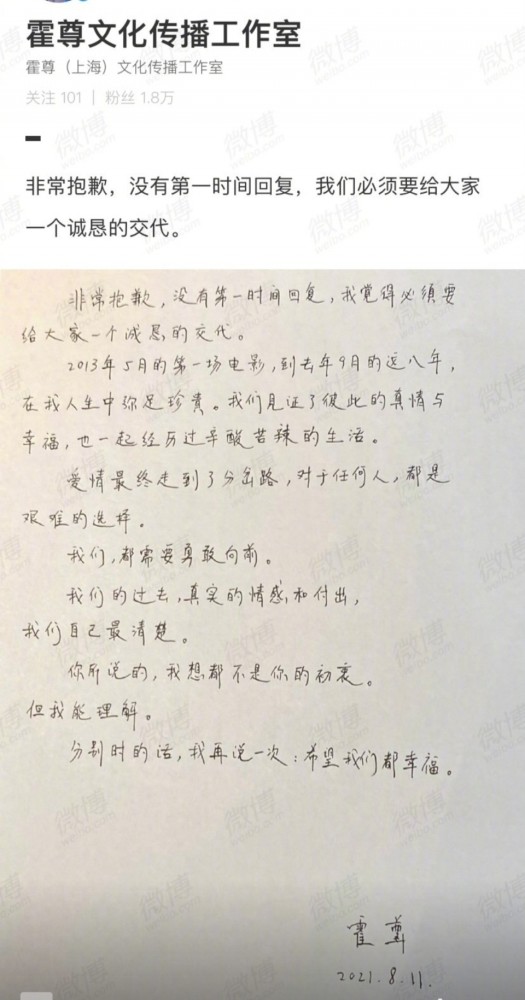 霍尊文化传播工作室
霍尊（上海）文化传播工作室
关注 101 | 粉丝 1.8万
非常抱歉，没有第一时间回复，我们必须要给大家
一个诚恳的交代。
非常抱歉，没有第一时间回复，我觉得必须要
给大家一个诚恳的交代。
2013年5月的第一场电影，到去年9月的这八年，
在我人生中弥足珍贵。我们见证了彼此的真情与
幸福，也一起经历过辛酸苦辣的生活。
爱情最终走到了分岔路，对于任何人，都是
艰难的选择。
我们，都需要勇敢向前。
我们的过去，真实的情感和付出，
我们自己最清楚。
你所说的，我想都不是你的初衷。
但我能理解。
分别时的话，我再说一次：希望我们都幸福。
霍尊
2021.8.11.